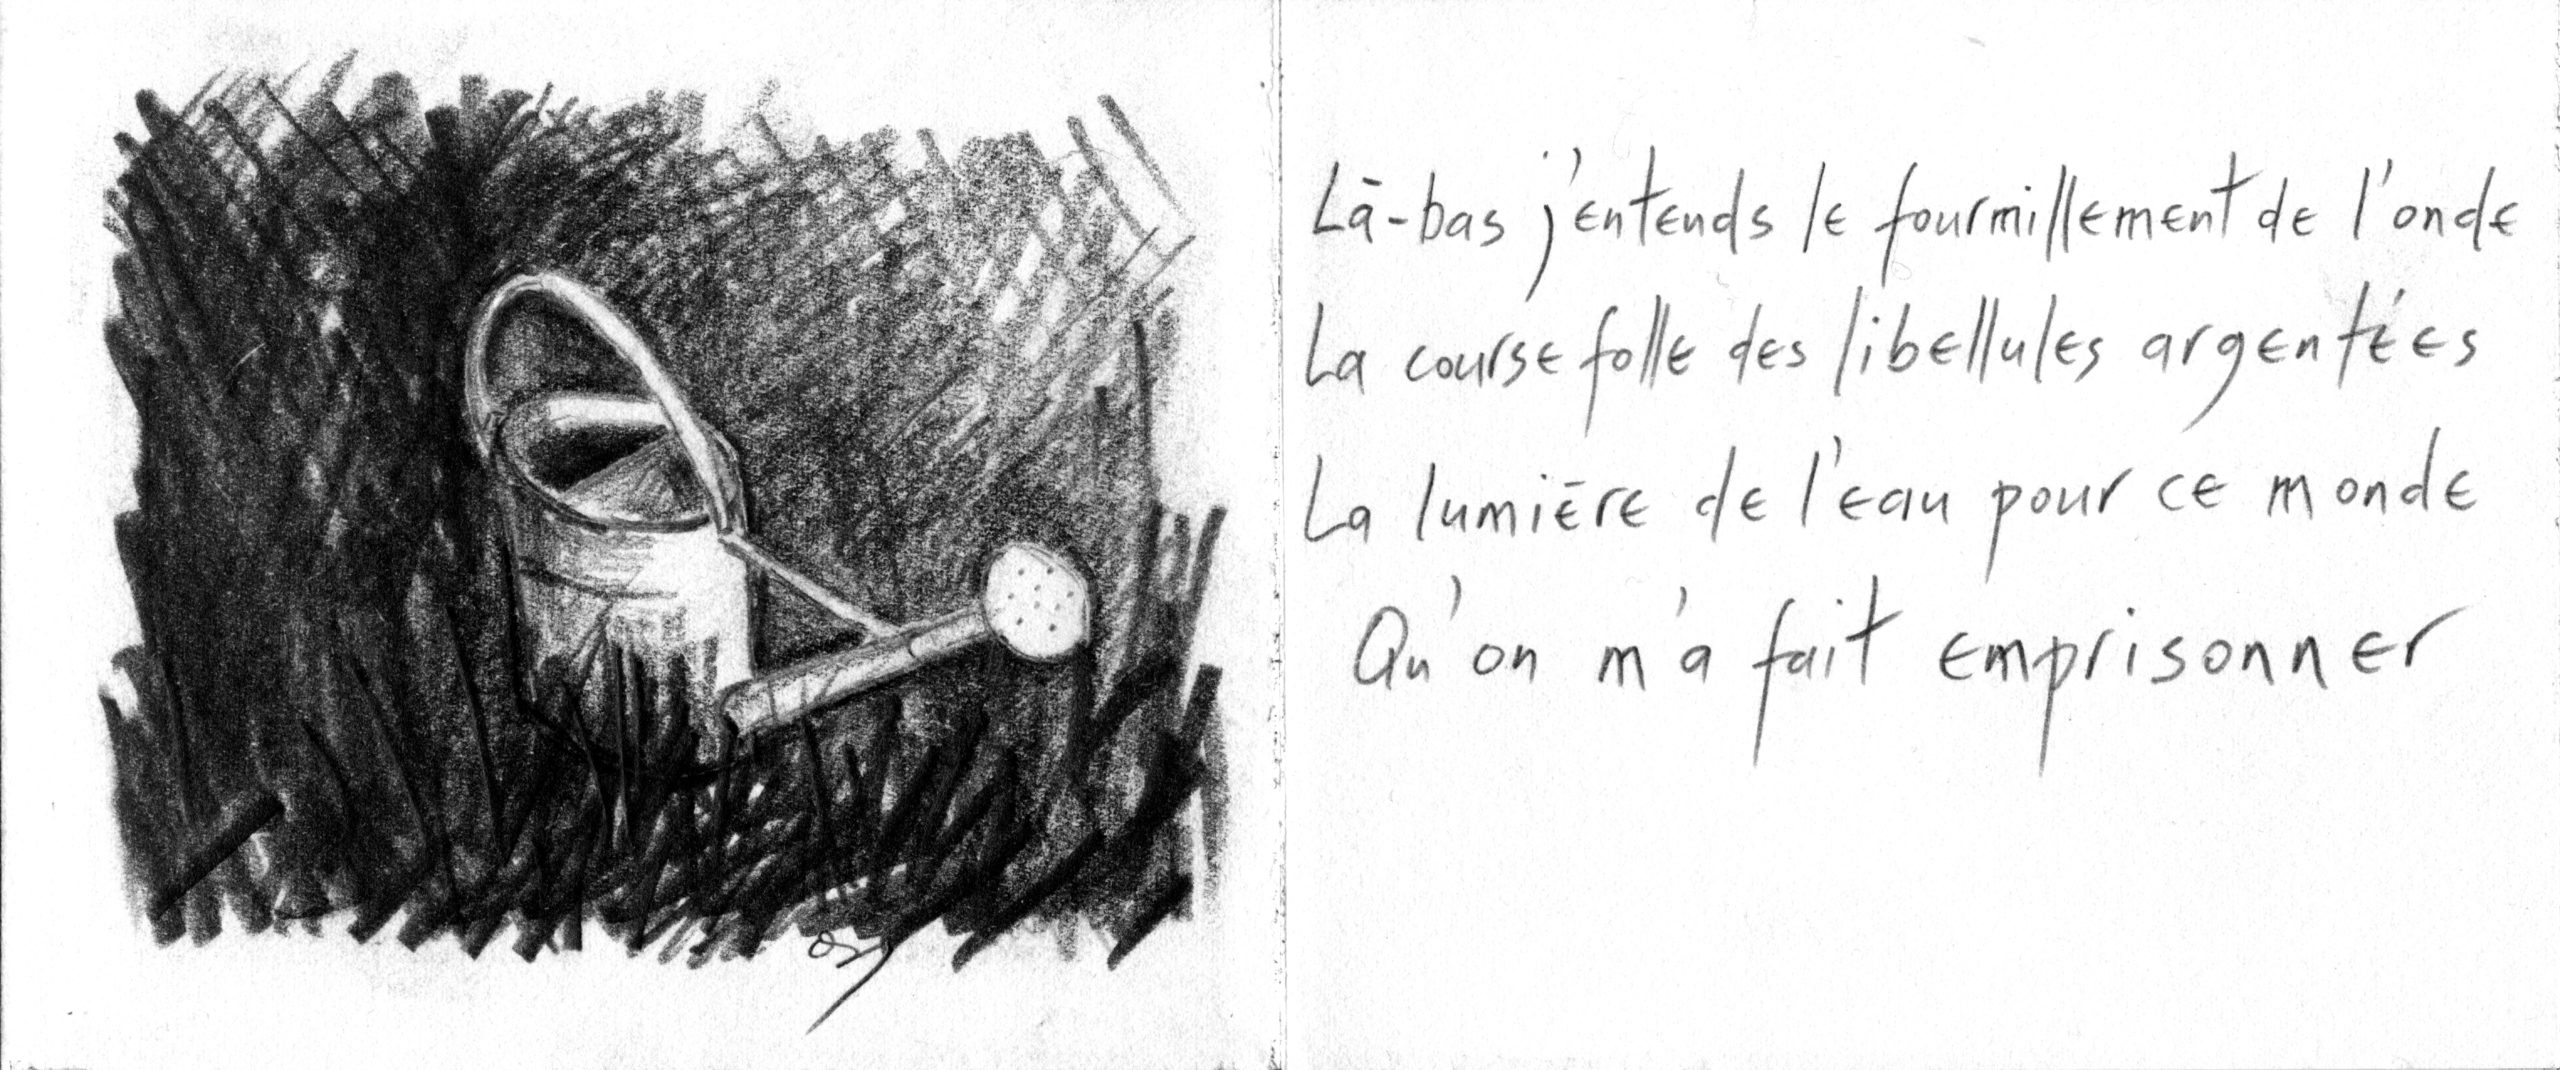 Là-bas j'entends le fourmillement de l'onde
La course folle des libellules argentées
La lumière de l'eau pour ce monde
Qu'on m'a fait emprisonner